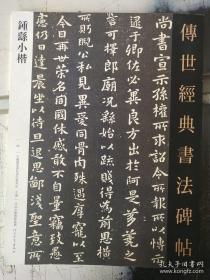 傳世經典書法碑帖
尚書宣示孫權所求詔令所報所以博示
逮于卿佐必冀良方出於阿是芻蕘之
言可擇郎廟況繇始以疏賤得為前恩橫
所眄睨公私見異愛同骨肉殊遇厚寵以至
今日再世榮名同國休慼敢不自量竊致愚
慮仍日達晨坐以待旦退思鄙淺聖意所
鍾繇小楷